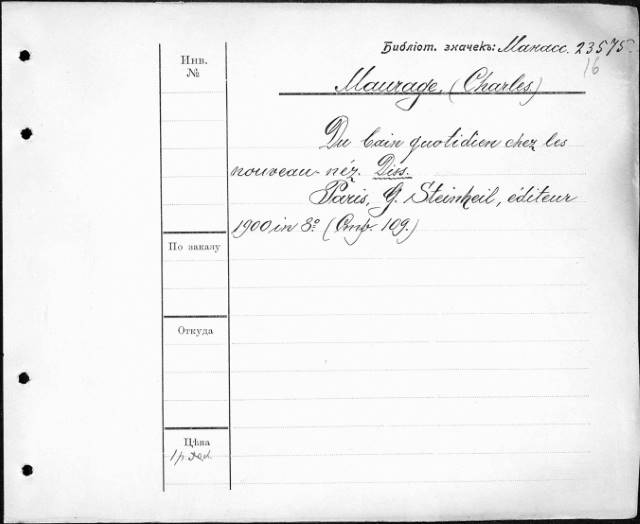 Библіот. значекъ: Манасс. 23575.
16
Инв.
№
Maurage, (Charles.)
Du bain quotidien chez les
nouveau-néz. Diss.
Paris, G. Steinheil, éditeur
1900 in 8º. (Стр. 109.)
По заказу
Откуда
Цѣна